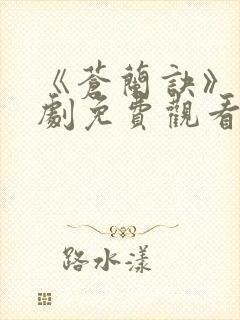 《蒼蘭訣》
劇免費觀看
路水漾